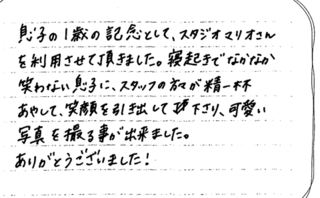 息子の1歳の記念として、スタジオマリオさん
を利用させて頂きました。寝起きでなかなか
笑わない息子に、スタッフの方々が精一杯
あやして、笑顔を引き出して下さり、可愛い
写真を撮る事が出来ました。
ありがとうございました!